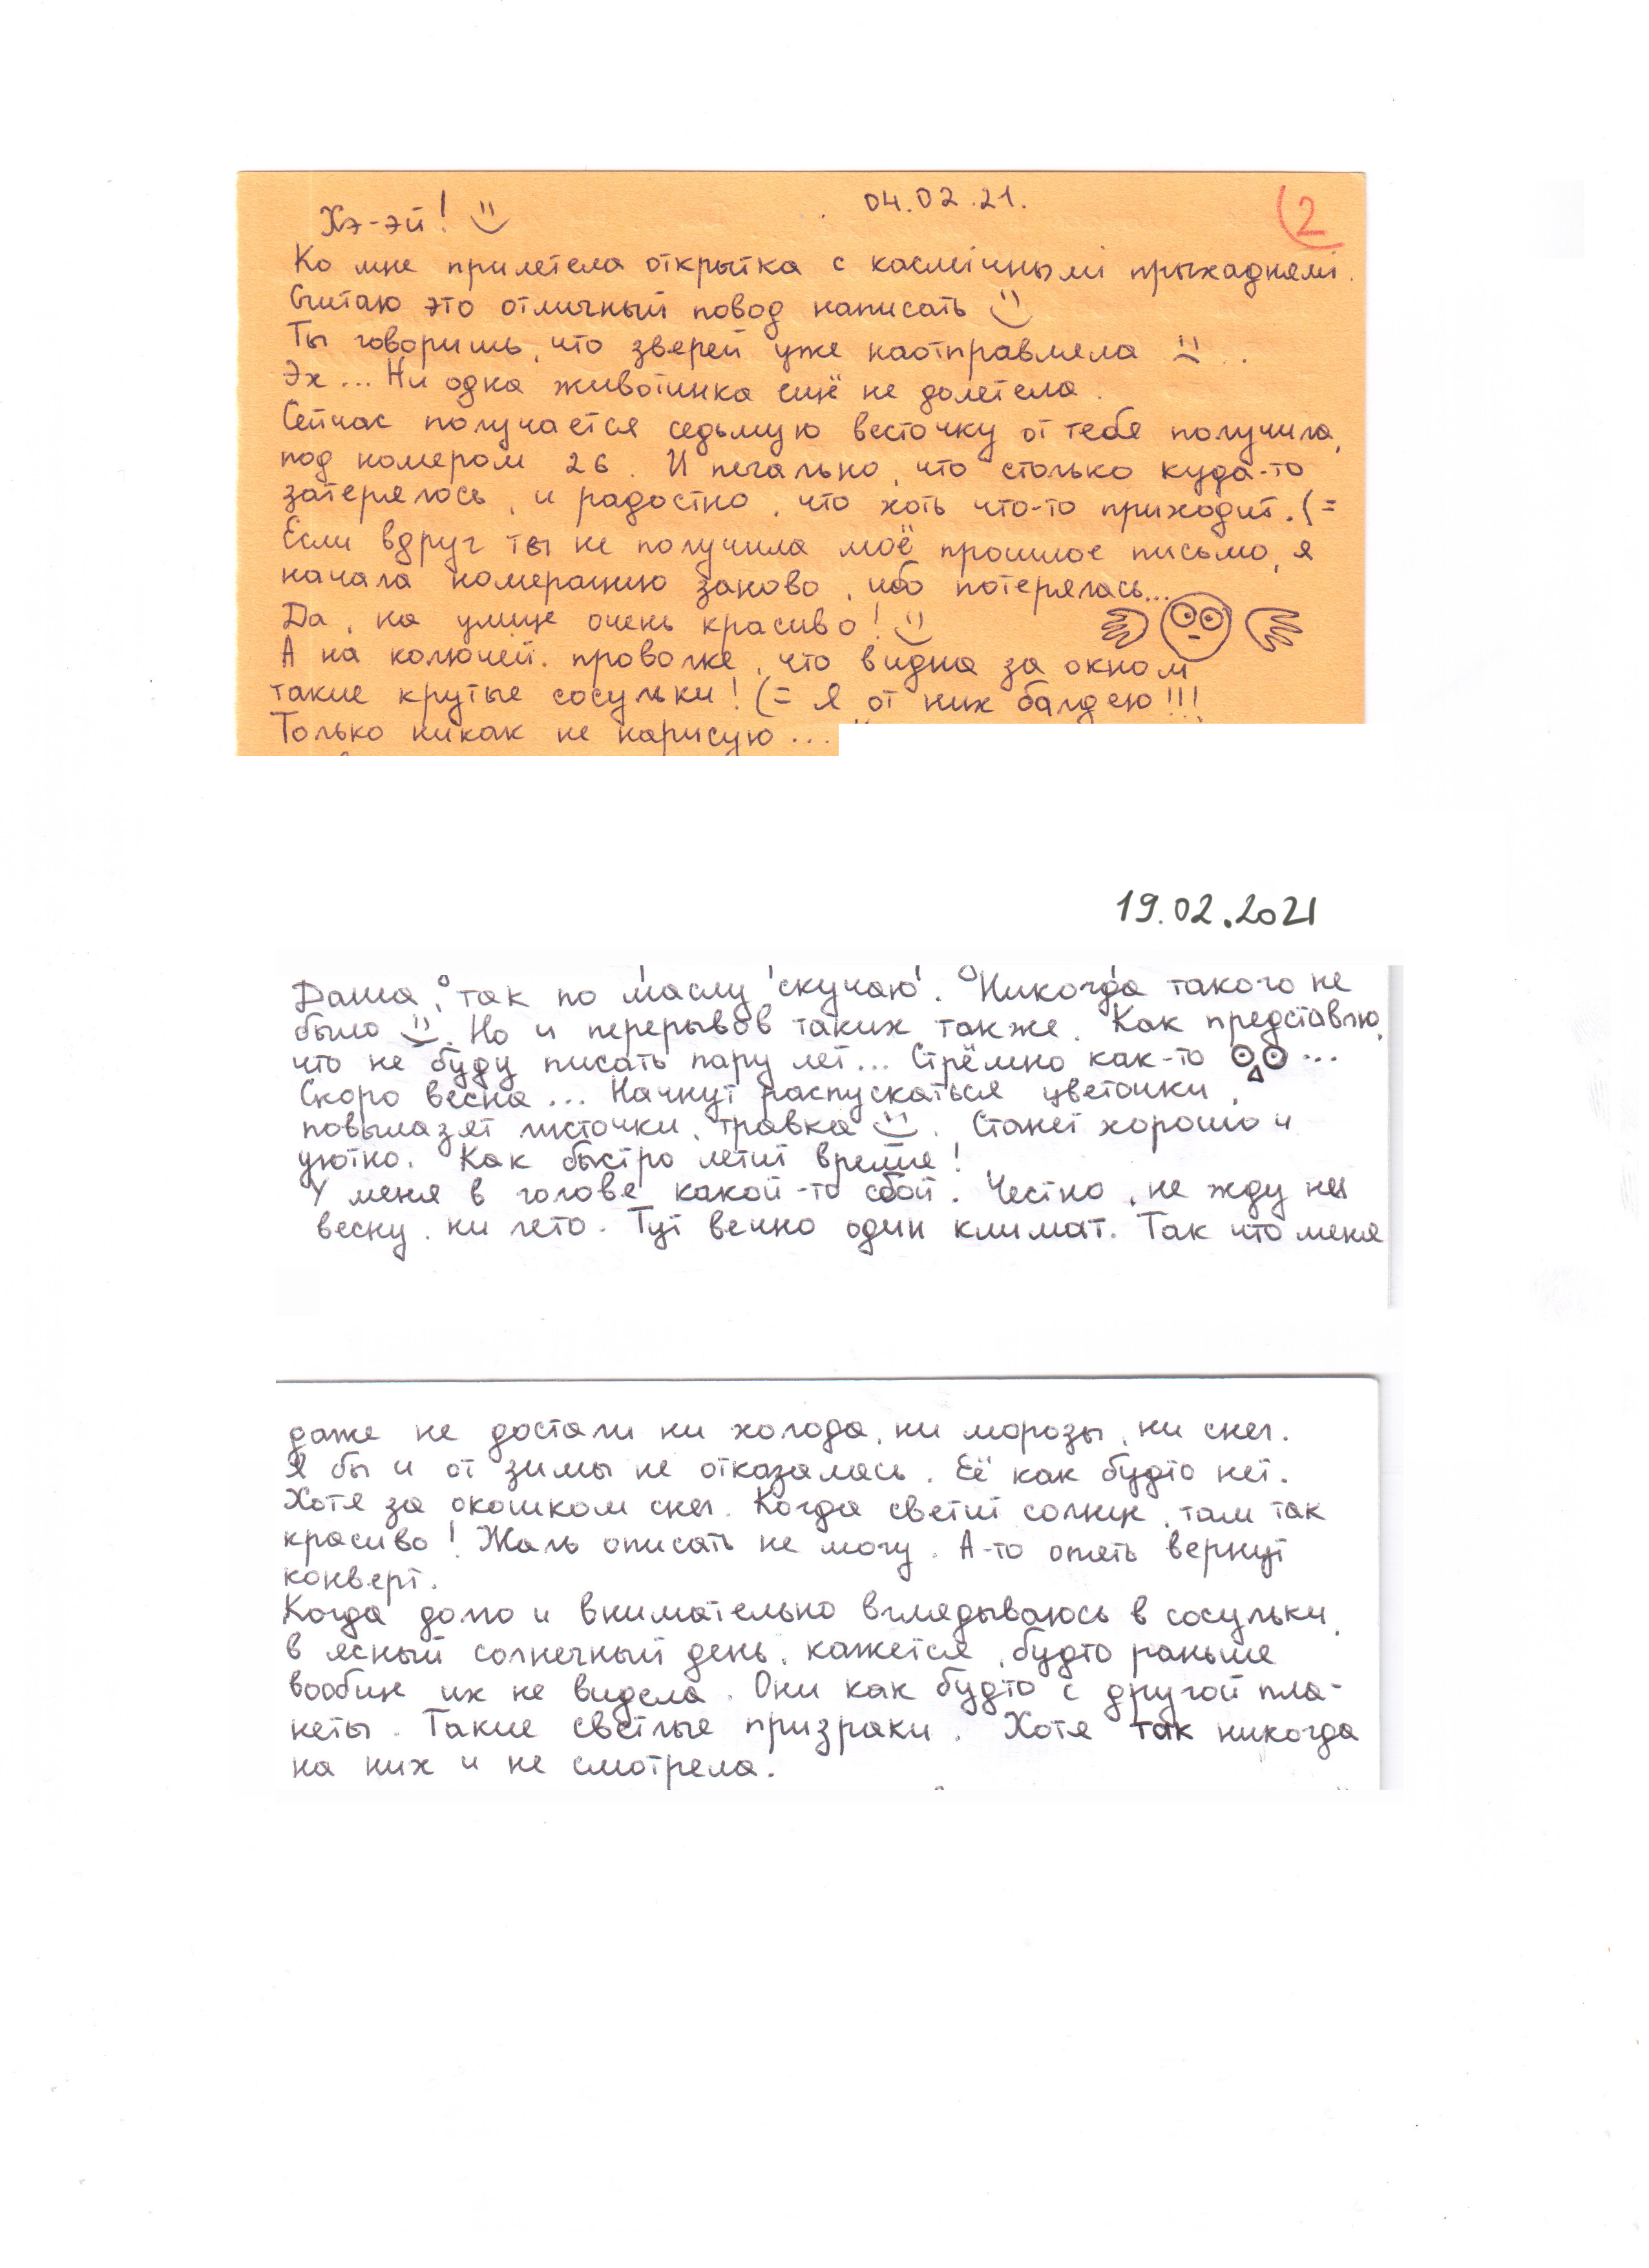 04.02.21.
2
Хэ-эй!
Ко мне прилетела открытка с касмічнымі прыхаднямі.
Считаю это отличный повод написать
Ты говоришь, что зверей уже наотправляла ..
Эх... Ни одна животинка ещё не долетела.
Сейчас получается седьмую весточку от тебя получила,
под номером 26. И печально, что столько куда-то
затерялось, и радостно, что хоть что-то приходит. (=
Если вдруг ты не получила моё прошлое письмо, я
начала номерацию заново, ибо потерялась...
Да, на улице очень красиво!
А на колючей. проволке, что видна за окном
такие крутые сосульки! (= Я от них балдею!!!
Только никак не нарисую...
19.02.2021
Даша, так по маслу скучаю. Никогда такого не
было. Но и перерывов таких также. Как представлю,
что не буду писать пару лет... Стрёмно как-то ...
Скоро весна... Начнут распускаться цветочки,
повылазят листочки, травка. Станет хорошо и
уютно. Как быстро летит время!
У меня в голове какой-то сбой. Честно, не жду ни
весну, ни лето. Тут вечно один климат. Так что меня
даже не достали ни холода, ни морозы, ни снег.
Я бы и от зимы не отказалась. Её как будто нет.
Хотя за окошком снег. Когда светит солнце, там так
красиво! Жаль описать не могу. А-то опять вернут
конверт.
Когда долго и внимательно вглядываюсь в сосульки,
в ясный солнечный день, кажется, будто раньше
вообще их не видела. Они как будто с другой пла-
неты. Такие светлые призраки. Хотя так никогда
на них и не смотрела.